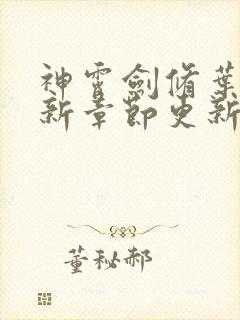 神霄劍脩葉
新章節更新
董秘郝